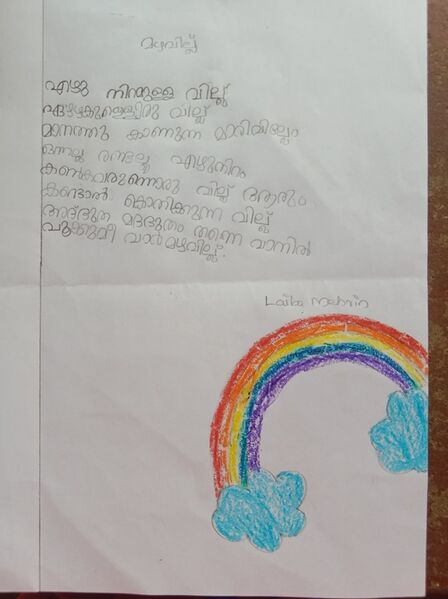 മഴവില്ല്
ഏഴു നിറമുള്ള വില്ല്
ഏഴഴകുള്ളൊരു വില്ല്
മാനത്തു കാണുന്ന മാരിവില്ലേ
ഒന്നല്ല രണ്ടല്ല ഏഴുനിറം
കൺകവരുന്നൊരു വില്ല് ആരും
കണ്ടാൽ കൊതിക്കുന്ന വില്ല്
അത്ഭുത മത്ഭുതം തന്നെ വാനിൽ
വാർമഴവില്ല്.
Laiba Mehrin